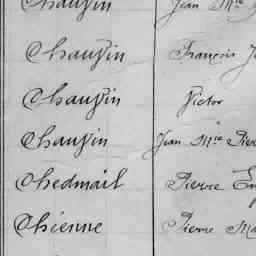 Chauvin Jean Mie
Chauvin François J
Chauvin Victor
Chauvin Jean Mie Pier
Chedmail Pierre
Chienne Pierre Ma